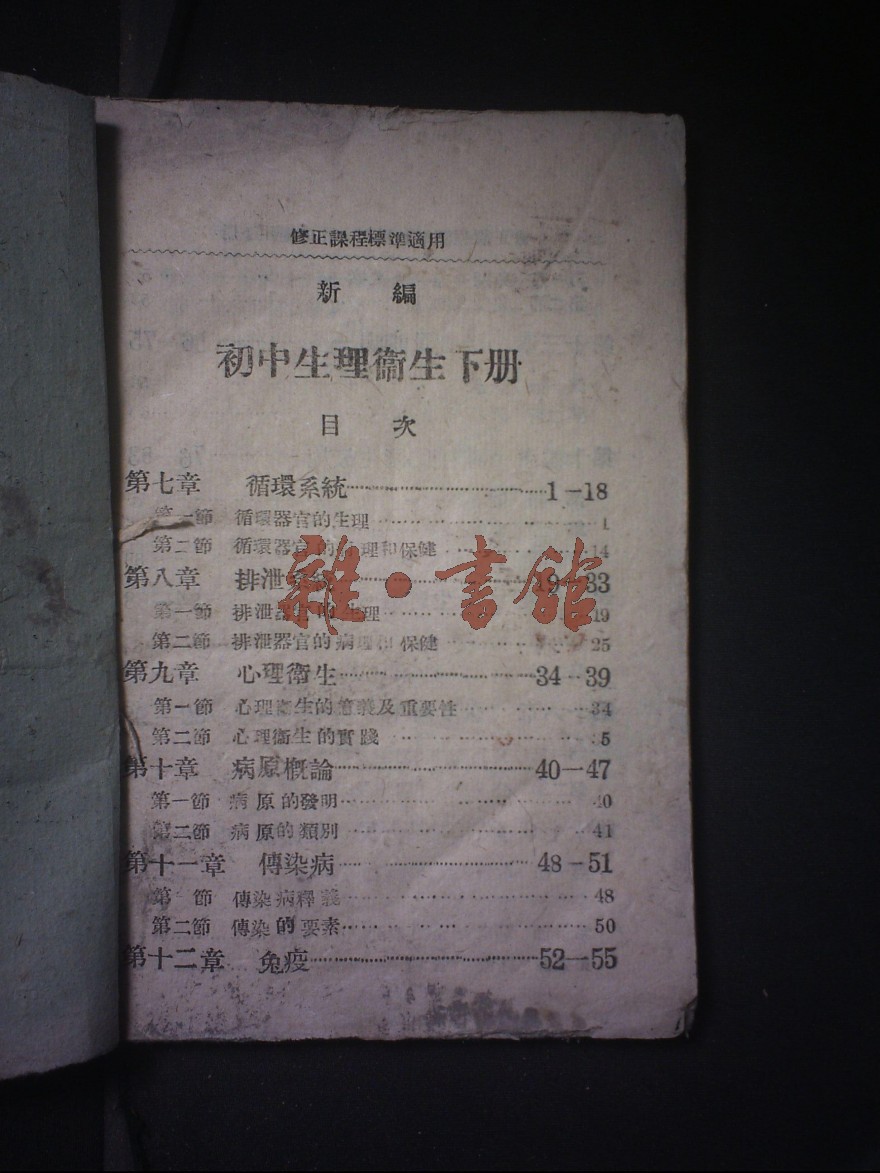 修正課程標準適用
新編
初中生理衞生下册
目次
第七章 循環系統 1-18
第一節 循環器官的生理 1
第二節 循環器官的 理和保健 14
第八章 排泄系統 19-33
第一節 排泄器官的生理 19
第二節 排泄器官的病理和保健 25
第九章 心理衞生 34-39
第一節 心理衞生的意義及重要性 34
第二節 心理衞生的實踐 5
第十章 病原概論 40-47
第一節 病原的發明 40
第二節 病原的類別 41
第十一章 傳染病 48-51
第 節 傳染病釋義 48
第二節 傳染的要素 50
第十二章 免疫 52-55
雜·書館